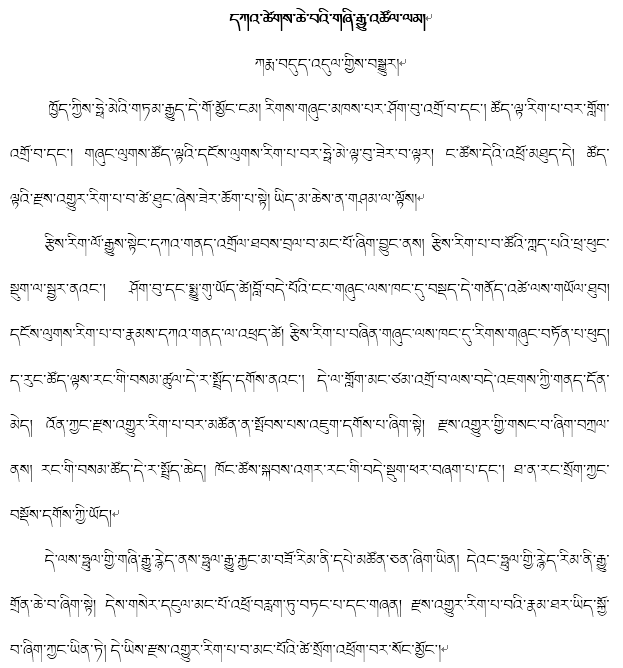 དཀའ་ཚེགས་ཆེ་བའི་གཞི་རྒྱུ་འཚོལ་ལམ།
ཀརྨ་བདུད་འདུལ་གྱིས་བསྒྱུར།
ཁྱོད་ཀྱིས་ཧྥེ་མེའི་གཏམ་རྒྱུད་དེ་གོ་མྱོང་ངམ། རིགས་གཞུང་མཁས་པར་ཤོག་བུ་འགྲོ་བ་དང་། ཚོད་ལྟ་རིག་པ་བར་གློག་
འགྲོ་བ་དང་། གཞུང་ལུགས་ཚོད་ལྟའི་དངོས་ལུགས་རིག་པ་བར་ཧྥེ་མེ་ལྟ་བུ་ཟེར་བ་ལྟར། ང་ཚོས་དེའི་འཕྲོ་མཐུད་དེ། ཚོད་
ལྟའི་རྫས་འགྱུར་རིག་པ་བ་ཚེ་ཐུང་ཞེས་ཟེར་ཆོག་པ་སྟེ། ཡིད་མ་ཆེས་ན་གཤམ་ལ་ལྟོས།
རྩིས་རིག་ལོ་རྒྱུས་སྟེང་དཀའ་གནད་འགྲོལ་ཐབས་བྲལ་བ་མང་པོ་ཞིག་བྱུང་ནས། རྩིས་རིག་པ་བ་ཚོའི་ཀླད་པའི་ཕྲ་ཕུང་
སྡུག་ལ་སྦྱར་ནའང་། ཤོག་བུ་དང་སྨྱུ་གུ་ཡོད་ཚེ།བློ་བདེ་པོའི་ངང་གཞུང་ལས་ཁང་དུ་བསྡད་དེ་གནོད་འཚེ་ལས་གཡོལ་ཐུབ།
དངོས་ལུགས་རིག་པ་བ་རྣམས་དཀའ་གནད་ལ་འཕྲད་ཚེ། རྩིས་རིག་པ་བཞིན་གཞུང་ལས་ཁང་དུ་རིགས་གཞུང་བཏོན་པ་ཕུད།
ད་རུང་ཚོད་ལྟས་རང་གི་བསམ་ཚུལ་དེ་ར་སྤྲོད་དགོས་ནའང་། དེ་ལ་གློག་མང་ཙམ་འགྲོ་བ་ལས་བདེ་འཇགས་ཀྱི་གནད་དོན་
མེད། འོན་ཀྱང་རྫས་འགྱུར་རིག་པ་བར་མཚོན་ན་སྤོབས་པས་འཇུག་དགོས་པ་ཞིག་སྟེ། རྫས་འགྱུར་གྱི་གསང་བ་ཞིག་བཀྲལ་
ནས། རང་གི་བསམ་ཚོད་དེ་ར་སྤྲོད་ཆེད། ཁོང་ཚོས་སྐབས་འགར་རང་གི་བདེ་སྡུག་ཕར་བཞག་པ་དང་། ཐ་ན་རང་སྲོག་ཀྱང་
བསྡོས་དགོས་ཀྱི་ཡོད།
དེ་ལས་ཧྥུལ་གྱི་གཞི་རྒྱུ་རྙེད་ནས་ཧྥུལ་རྒྱུ་རྐྱང་མ་བཟོ་རིམ་ནི་དཔེ་མཚོན་ཅན་ཞིག་ཡིན། དེའང་ཧྥུལ་གྱི་རྙེད་རིམ་ནི་རྒྱུ་
གྲོན་ཆེ་བ་ཞིག་སྟེ། དེས་གསེར་དངུལ་མང་པོ་འཕྲོ་བརླག་ཏུ་བཏང་པ་དང་གཞན། རྫས་འགྱུར་རིག་པ་བའི་རྣམ་ཐར་ཡིད་སྐྱོ་
བ་ཞིག་ཀྱང་ཡིན་ཏེ། དེ་ཡིས་རྫས་འགྱུར་རིག་པ་བ་མང་པོའི་ཚེ་སྲོག་འཕྲོག་བར་སོང་མྱོང་།